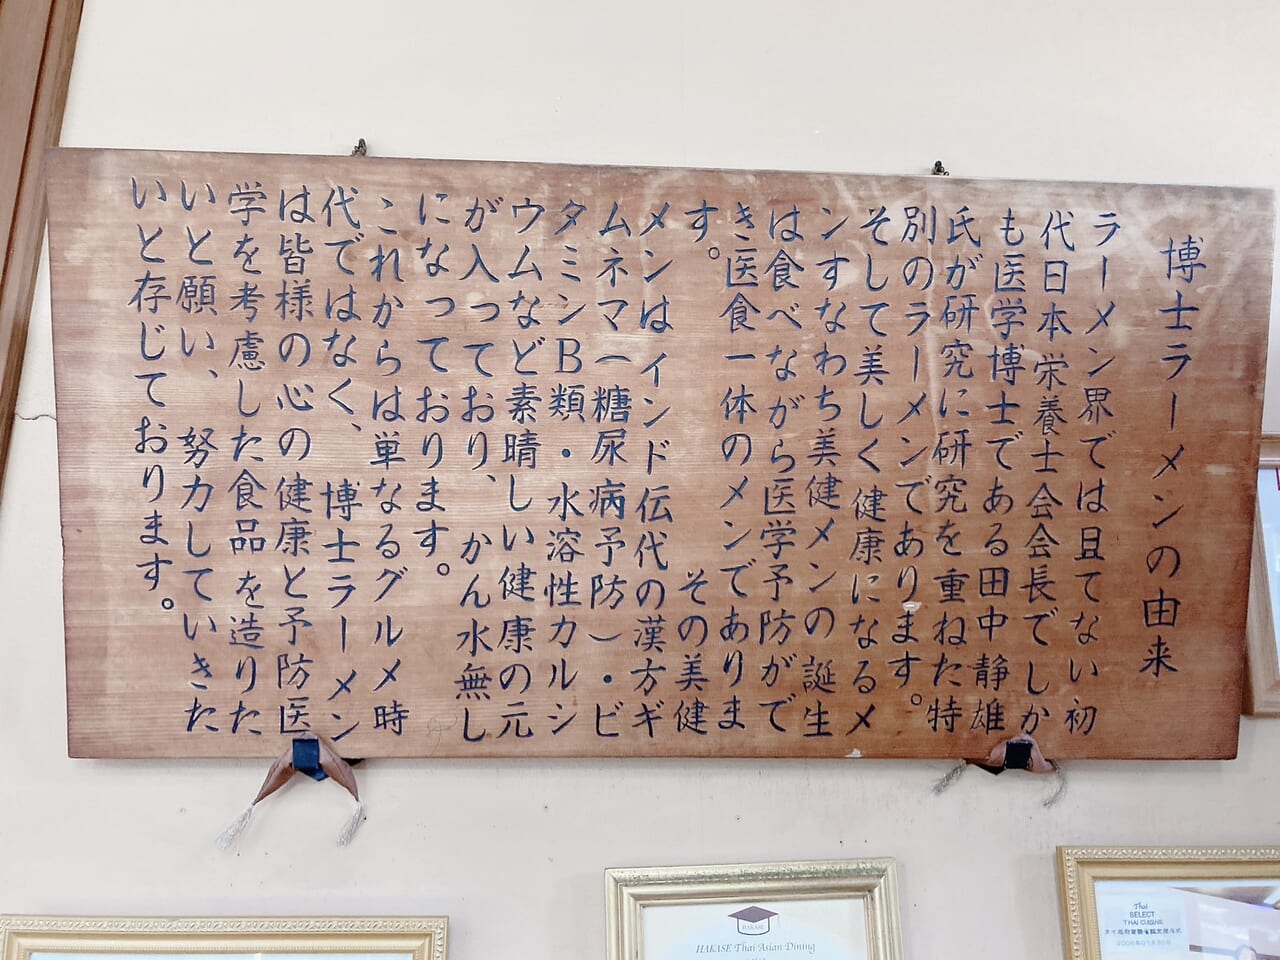 博士ラーメンの由来
ラーメン界では且てない初
代日本栄養士会会長でしか
も医学博士である田中静雄
氏が研究に研究を重ねた特
別のラーメンであります。
そして美しく健康になるメ
ンすなわち美健メンの誕生
は食べながら医学予防がで
き医食一体のメンでありま
す。　　　　　　その美健
メンはインド伝代の漢方ギ
ムネマ(糖尿病予防)・ビ
タミンB類・水溶性カルシ
ウムなど素晴しい健康の元
が入っており、かん水無し
になっております。
これからは単なるグルメ時
代ではなく、博士ラーメン
は皆様の心の健康と予防医
学を考慮した食品を造りた
いと願い、努力していきた
いと存じております。
HAKASE
HAKASE Thai Asian Dining
Thai
SELECT
THAI CUISINE